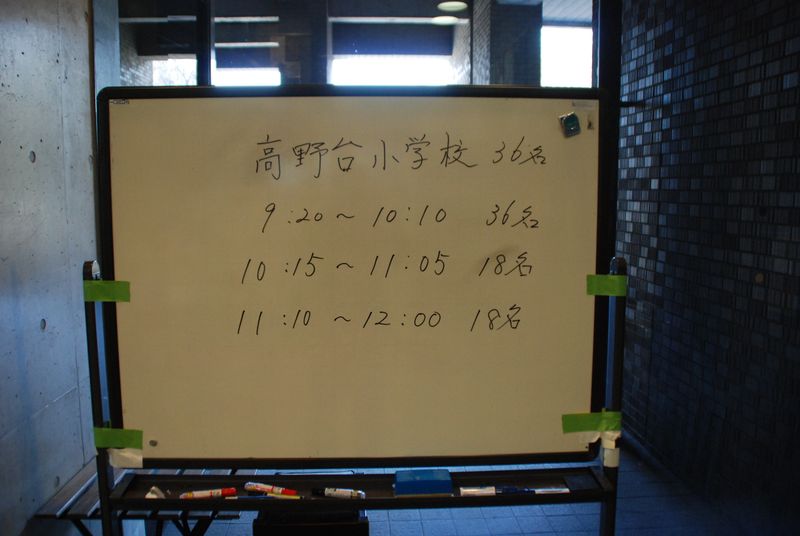 高野台小学校 36名
9:20~10:10 36名
10:15~11:05 18名
11:10~12:00 18名